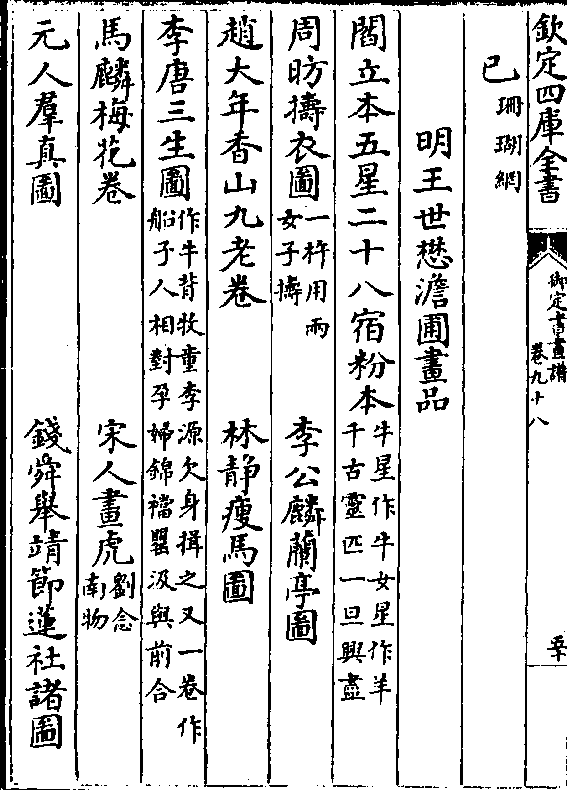 欽定四庫全書
御定書畫譜
卷九十八
已珊瑚網
明王世懋澹圃畫品
閻立本五星二十八宿粉本牛星作牛女星作羊千古靈匹一旦興盡
周昉擣衣圖一杵用兩女子擣　李公麟蘭亭圖
趙大年香山九老卷　林静瘦馬圖
李唐三生圖作牛背牧童李源欠身揖之又一卷作船子人相對孕婦錦襠罌汲與前合
馬麟梅花卷　宋人畫虎劉念南物
元人羣真圖　錢舜舉靖節蓮社諸圖